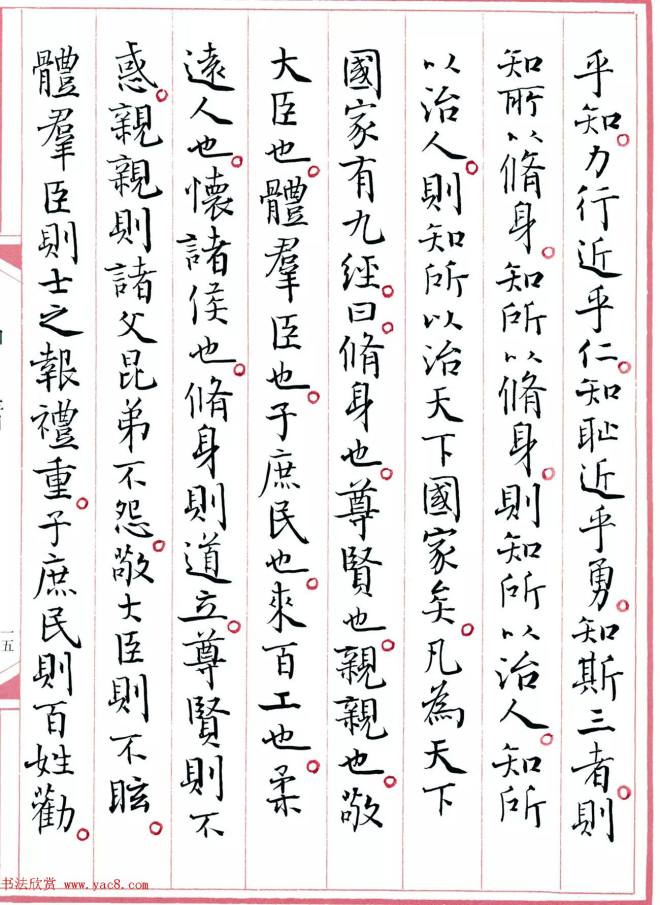 乎知。力行近乎仁。知恥近乎勇。知斯三者。則
知所以脩身。知所以脩身。則知所以治人。知所
以治人。則知所以治天下國家矣。凡為天下
國家有九經。曰。脩身也。尊賢也。親親也。敬
大臣也。體羣臣也。子庶民也。來百工也。柔
遠人也。懷諸侯也。脩身則道立。尊賢則不
惑。親親則諸父昆弟不怨。敬大臣則不眩。
體羣臣則士之報禮重。子庶民則百姓勸。
一五
书法欣赏 www.yac8.com